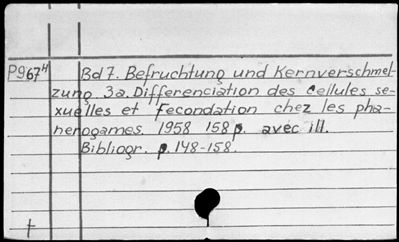 P967H Bd 7. Befruchtung und Kernverschmel-
zung 3a. Differenciation des cellules se-
xuelles et fecondation chez les pha-
nerogames. 1958 158 p. avec ill.
Bibliogr. p. 148-158.